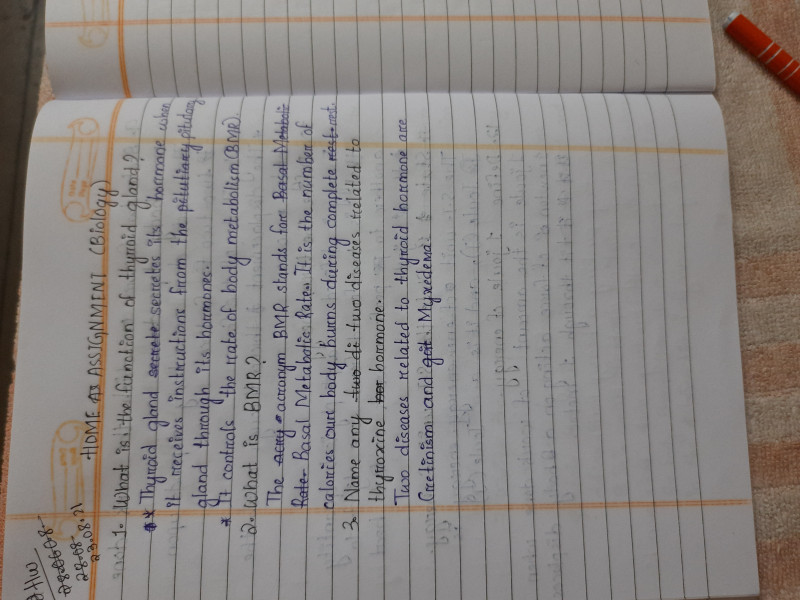 HW
28.08.21
23.08.21
HOME ASSIGNMENT (Biology)
1. What is the function of thyroid gland?
* Thyroid gland secrete secretes its hormone when
it receives instructions from the pitutiary pitutary
gland through its hormones.
* It controls the rate of body metabolism (BMR)
2. What is BMR?
The acry acronym BMR stands for Basal Metabolic
Rate. Basal Metabolic Rate. It is the number of
calories our body burns during complete rest.
3. Name any two di two diseases related to
thyroxine hor hormone.
Two diseases related to thyroid hormone are
Cretinism and goit Myxedema.